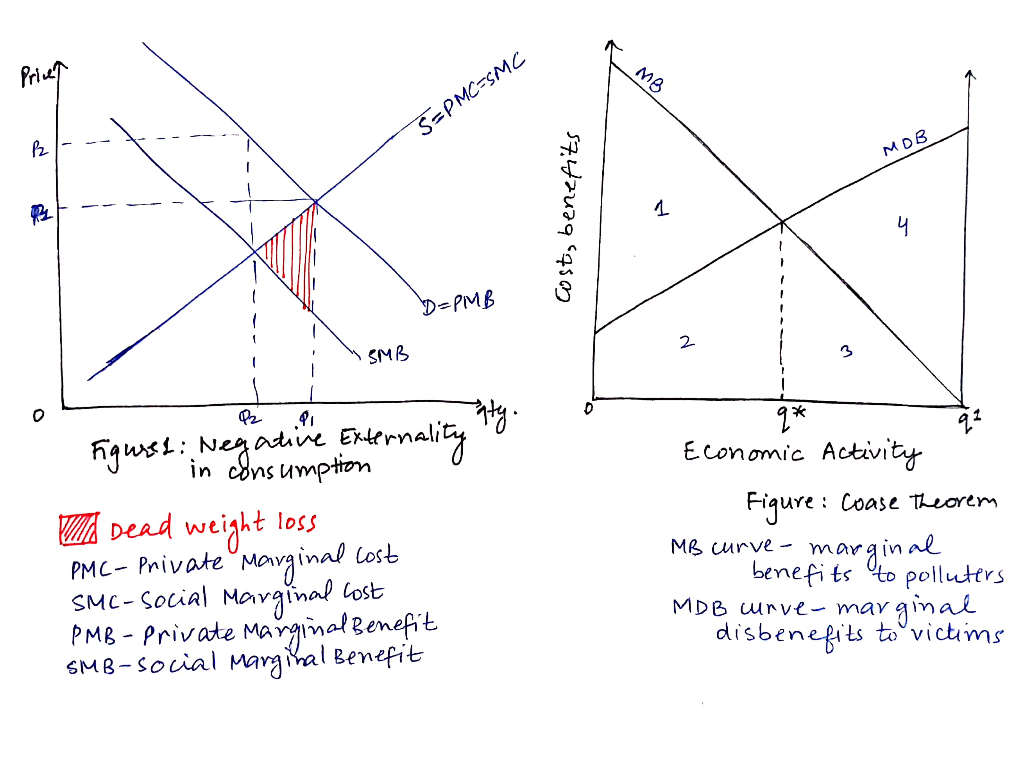 Price
P2
P1
S=PMC=SMC
D=PMB
SMB
0
Q2
Q1
qty.
Figure1: Negative Externality
in consumption
Dead weight loss
PMC- Private Marginal Cost
SMC-Social Marginal Cost
PMB - Private Marginal Benefit
SMB-Social Marginal Benefit
Costs, benefits
MB
MDB
1
2
3
4
0
q*
q1
Economic Activity
Figure: Coase Theorem
MB curve- marginal
benefits to polluters
MDB curve- marginal
disbenefits to victims